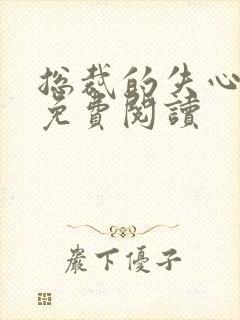 总裁的失心
免費閱讀
嚴下優子